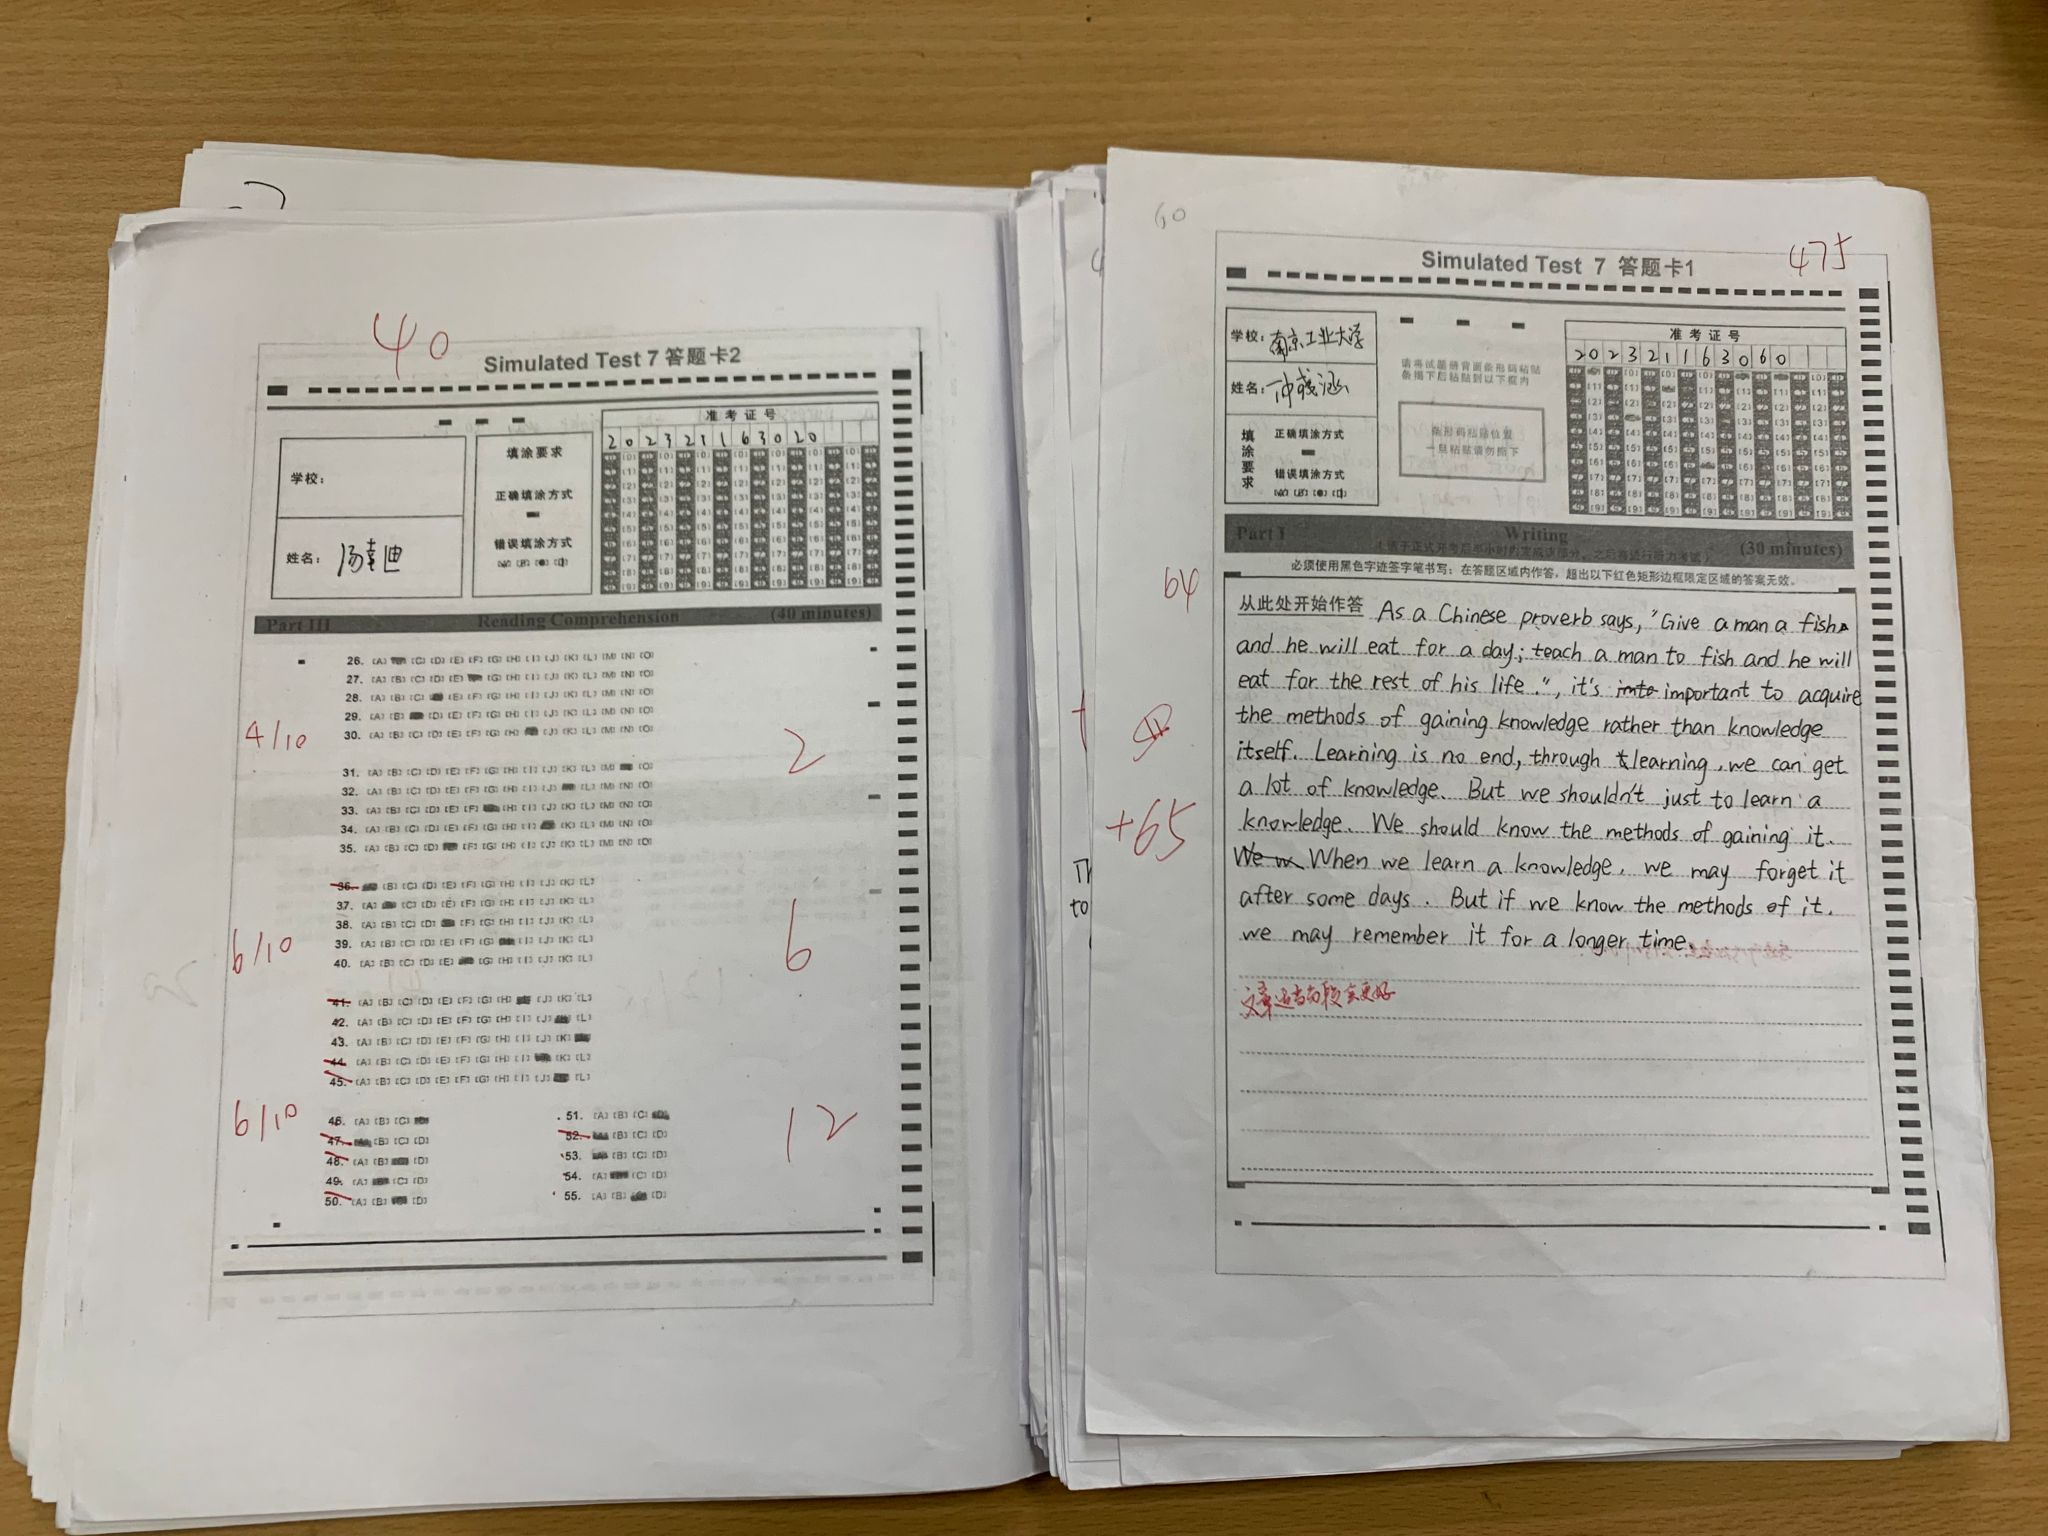 40
Simulated Test 7 答题卡2
准考证号
202321163020
学校：
姓名：
填涂要求
正确填涂方式
错误填涂方式
Part III Reading Comprehension (40 minutes)
26. [A] [C] [D] [E] [F] [G] [H] [I] [J] [K] [L] [M] [N] [O]
27. [A] [B] [C] [D] [E] [G] [H] [I] [J] [K] [L] [M] [N] [O]
28. [A] [B] [C] [E] [F] [G] [H] [I] [J] [K] [L] [M] [N] [O]
29. [A] [B] [D] [E] [F] [G] [H] [I] [J] [K] [L] [M] [N] [O]
30. [A] [B] [C] [D] [E] [F] [G] [H] [J] [K] [L] [M] [N] [O]
4/10
2
31. [A] [B] [C] [D] [E] [F] [G] [H] [I] [J] [K] [L] [M] [O]
32. [A] [B] [C] [D] [E] [F] [G] [H] [I] [J] [L] [M] [N] [O]
33. [A] [B] [C] [D] [E] [F] [H] [I] [J] [K] [L] [M] [N] [O]
34. [A] [B] [C] [D] [E] [F] [G] [H] [I] [K] [L] [M] [N] [O]
35. [A] [B] [C] [D] [F] [G] [H] [I] [J] [K] [L] [M] [N] [O]
36. [B] [C] [D] [E] [F] [G] [H] [I] [J] [K] [L]
37. [A] [C] [D] [E] [F] [G] [H] [I] [J] [K] [L]
38. [A] [B] [C] [D] [F] [G] [H] [I] [J] [K] [L]
39. [A] [B] [C] [D] [E] [F] [G] [I] [J] [K] [L]
40. [A] [B] [C] [D] [E] [G] [H] [I] [J] [K] [L]
6/10
6
41. [A] [B] [C] [D] [E] [F] [G] [H] [J] [K] [L]
42. [A] [B] [C] [D] [E] [F] [G] [H] [I] [J] [L]
43. [A] [B] [C] [D] [E] [F] [G] [H] [I] [J] [K]
44. [A] [B] [C] [D] [E] [F] [G] [H] [I] [K] [L]
45. [A] [B] [C] [D] [E] [F] [G] [H] [I] [J] [L]
6/10
12
46. [A] [B] [C]
47. [B] [C] [D]
48. [A] [B] [D]
49. [A] [C] [D]
50. [A] [B] [D]
51. [A] [B] [C]
52. [B] [C] [D]
53. [B] [C] [D]
54. [A] [C] [D]
55. [A] [B] [D]
60
Simulated Test 7 答题卡1
475
学校：南京工业大学
姓名：
填涂要求
正确填涂方式
错误填涂方式
请将试题册背面条形码粘贴
条揭下后粘贴到以下框内
条形码粘贴位置
一旦粘贴请勿揭下
准考证号
202321163060
Part I Writing (30 minutes)
（请于正式开考后半小时内完成该部分，之后将进行听力考试）
必须使用黑色字迹签字笔书写：在答题区域内作答，超出以下红色矩形边框限定区域的答案无效。
64
+65
从此处开始作答 As a Chinese proverb says, "Give a man a fish
and he will eat for a day; teach a man to fish and he will
eat for the rest of his life.", it's important to acquire
the methods of gaining knowledge rather than knowledge
itself. Learning is no end, through learning, we can get
a lot of knowledge. But we shouldn't just to learn a
knowledge. We should know the methods of gaining it.
We w When we learn a knowledge, we may forget it
after some days. But if we know the methods of it,
we may remember it for a longer time.
文章适当分段会更好
to